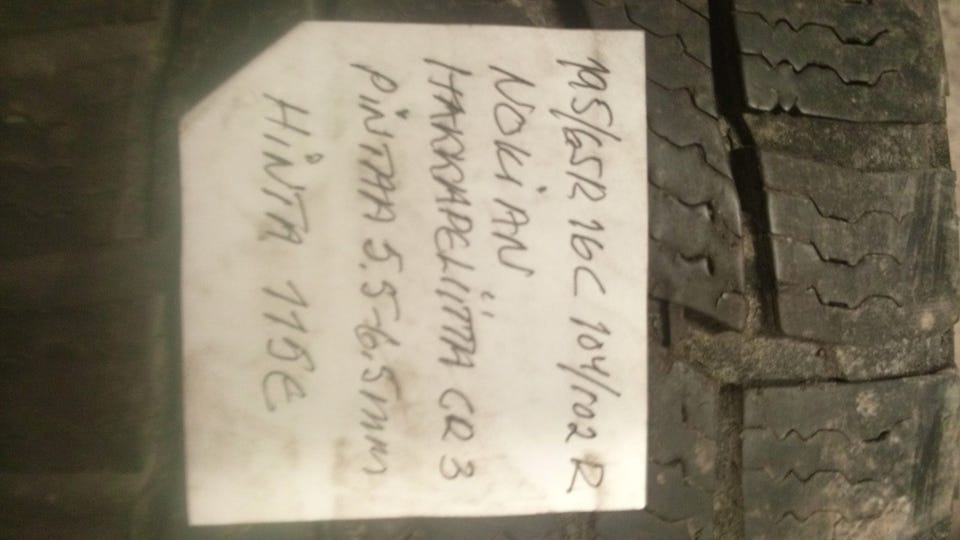 195/65R 16C 104/102 R
NOKiAN
HAKKAPELiiTTA CR 3
PiNTAA 5.5-6,5mm
HiNTA 115€